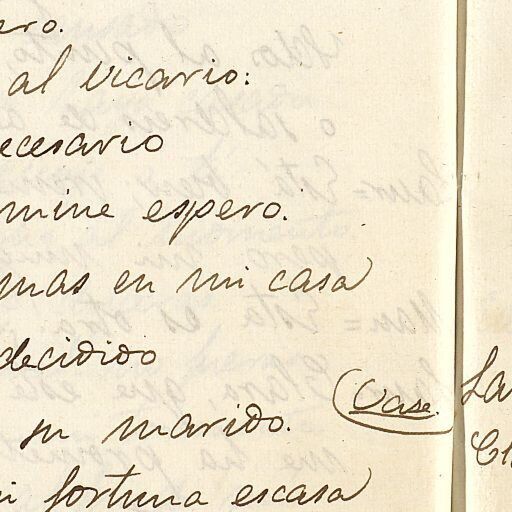 ero.
al vicario:
ecesario
mine espero.
mas en mi casa
decidido
(Vase.
su marido.
i fortuna escasa
La
Cl